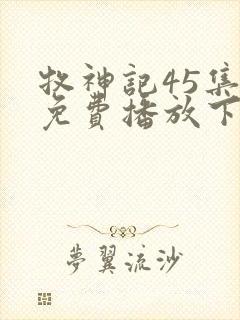 牧神記45集
免費播放下
夢翼流沙